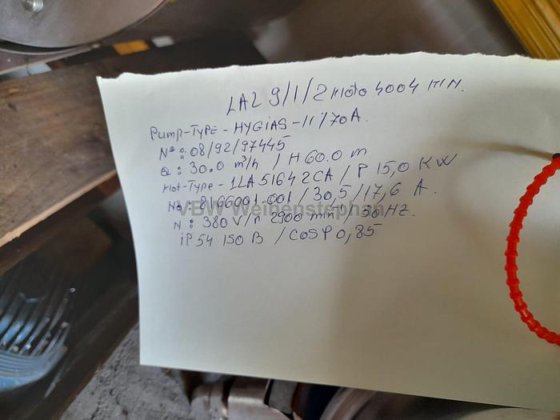 LA2 9/1/2 moto 4004 MTN.
Pump-TYPE - HYGiAS-II/70A.
Nº: 08/92/97445
Q: 30.0 m³/h / H 60.0 m
Mot-Type - 1LA 5164 2CA / P 15,0 KW
Nº: 8166001-001 / 30,5/17,6 A.
VBW Weihenstephan
N: 380 V/n 2900 min¹/ 50 HZ.
iP 54 ISO B / COSP 0,85